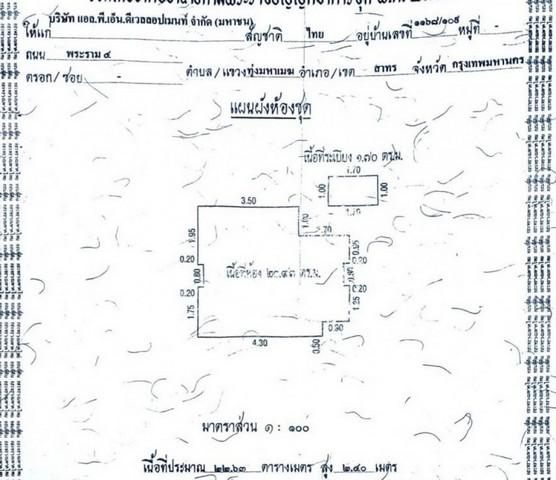 บริษัท แอล.พี.เอ็น.ดีเวลลอปเมนท์ จำกัด (มหาชน)
ให้แก่ สัญชาติ ไทย อยู่บ้านเลขที่ ๑๑๖๘/๑๐๙ หมู่ที่ -
ถนน พระราม ๔
ตรอก/ซอย - ตำบล/แขวง ทุ่งมหาเมฆ อำเภอ/เขต สาทร จังหวัด กรุงเทพมหานคร
แผนผังห้องชุด
เนื้อที่ระเบียง ๑.๗๐ ตร.ม.
1.70
1.00 1.00
1.70
3.50
1.00
.70
1.95 .95
0.20 0.20
0.80 เนื้อที่ห้อง ๒๐.๙๓ ตร.ม.
0.20 0.20
1.75 1.25
0.90
4.30 0.50
มาตราส่วน ๑ : ๑๐๐
เนื้อที่ประมาณ ๒๒.๖๓ ตารางเมตร สูง ๒.๔๐ เมตร